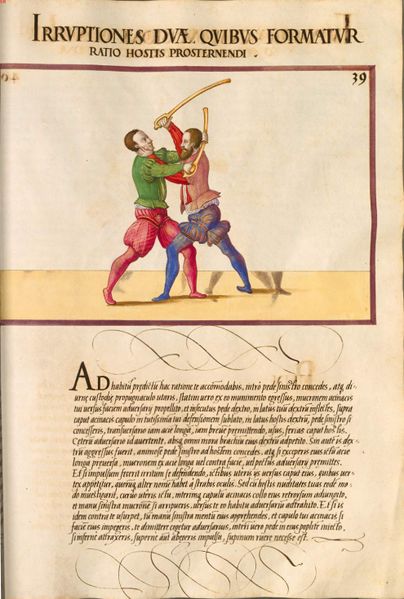 IRRVPTIONES DVÆ QVIBVS FORMATVR
RATIO HOSTIS PROSTERNENDI .
39
AD habitū hac ratione te accōmodabis, intrò pede sinistro concedes, atq̨
custodiæ propugnaculo utaris, statim uero ex eo munimento egressus, mucronem acinacis
tui uersus faciem aduersarij propellito, et insecutus pede dextro, in latus tuū dextrū inflectes, supra
caput acinacis capulo in tutissimū tui defensionem sublato, in latus hostis dextrū, pede sinistro si
concesseris, transuersariam acie longa, iam breui permittendo, usus, ferias caput hostis.
Ceterū aduersario id auertente, absq̨ omni mora brachiū eius dextrū adpetito. Sin aūt is dex-
trū aggressus fuerit, animose pede sinistro ad hostem concedes, atq̨ si exceperis eius ictū acie
longa præuersa, mucronem ex acie longa uel contra faciē, uel pectus aduersarij permittes.
Et si impulsum fecerit irritum se defendendo, ictibus uteris is uersus caput eius, quibus uer-
tex appetitur, quorūq̨ alter nomē habet à strabis oculis. Sed cū hostis nuditates tuas eodē mo-
do inuestigarit, cauto uteris ictū, interimq̨ capulū acinacis collo eius retrorsum adiungito,
et manu sinistra mucronē si arripueris, uersus te eo habitu aduersariū adtrahito. Et si is
idem contra te usurpet, tū manu sinistra mentū eius apprehendes, et capulo tui acinacis si
faciē eius impegeris, te dimittere cogetur aduersarius, intrò uero pede in eius poplitē iniecto,
si inferne attraxeris, superne aūt abegeris impulsu, supinum ruere necesse est .